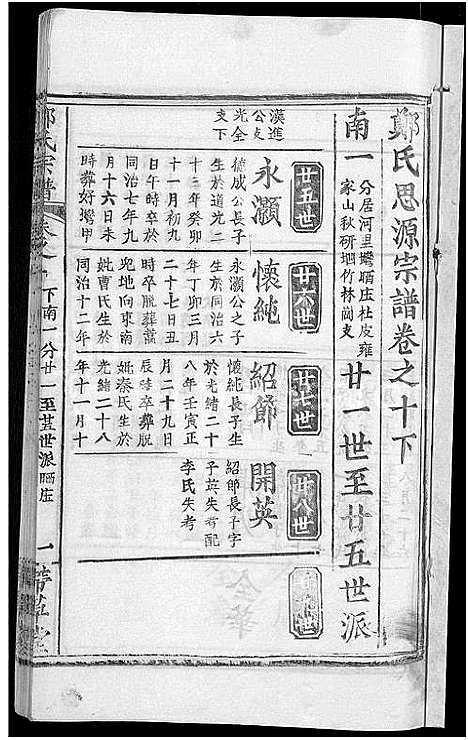 鄭氏思源宗譜卷之十下
南一
分居河里壪晒庄杜皮雍
家山秋硎堋竹林崗支
廿一世至廿五世派
漢進
公支
光全
支下
廿五世
永灝
德成公長子
生於道光二
十三年癸卯
十一月初九
日午時卒於
同治七年九
月十六日未
時葬好壪甲
廿六世
懷純
永灝公之子
生於同治六
年丁卯三月
二十七日丑
時卒脱葬蒿
兜地向東南
妣曹氏生於
同治十二年
廿七世
紹節
懷純長子生
於光緒二十
八年壬寅正
月二十九日
辰時卒葬脱
妣秦氏生於
光緒二十八
年十一月十
廿八世
開英
紹節長子字
子英失考配
李氏失考
鄭氏宗譜
卷之十
下南一分廿一至廿五世派晒庄
一